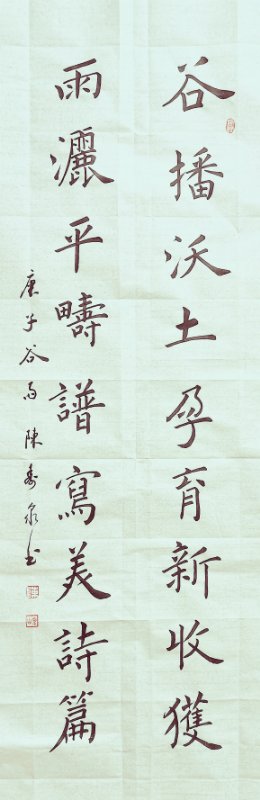 谷播沃土孕育新收獲
雨灑平疇譜寫美詩篇
庚子谷雨陳壽泉书